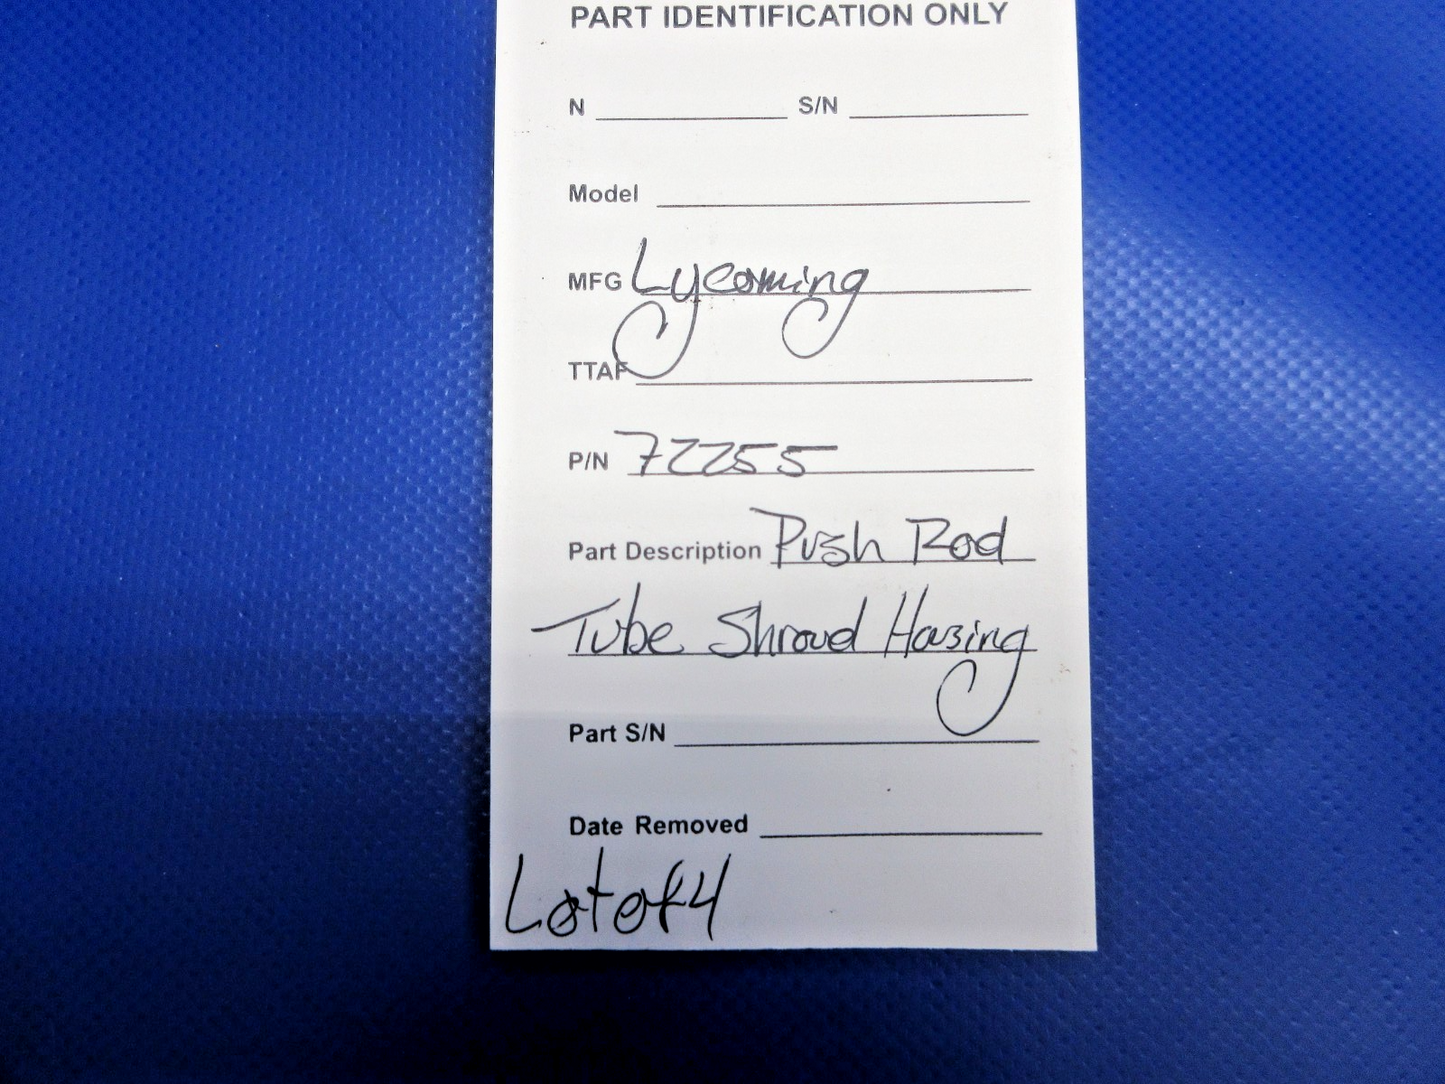 PART IDENTIFICATION ONLY
N S/N
Model
MFG Lycoming
TTAF
P/N 72255
Part Description Push Rod
Tube Shroud Housing
Part S/N
Date Removed
Lot of 4